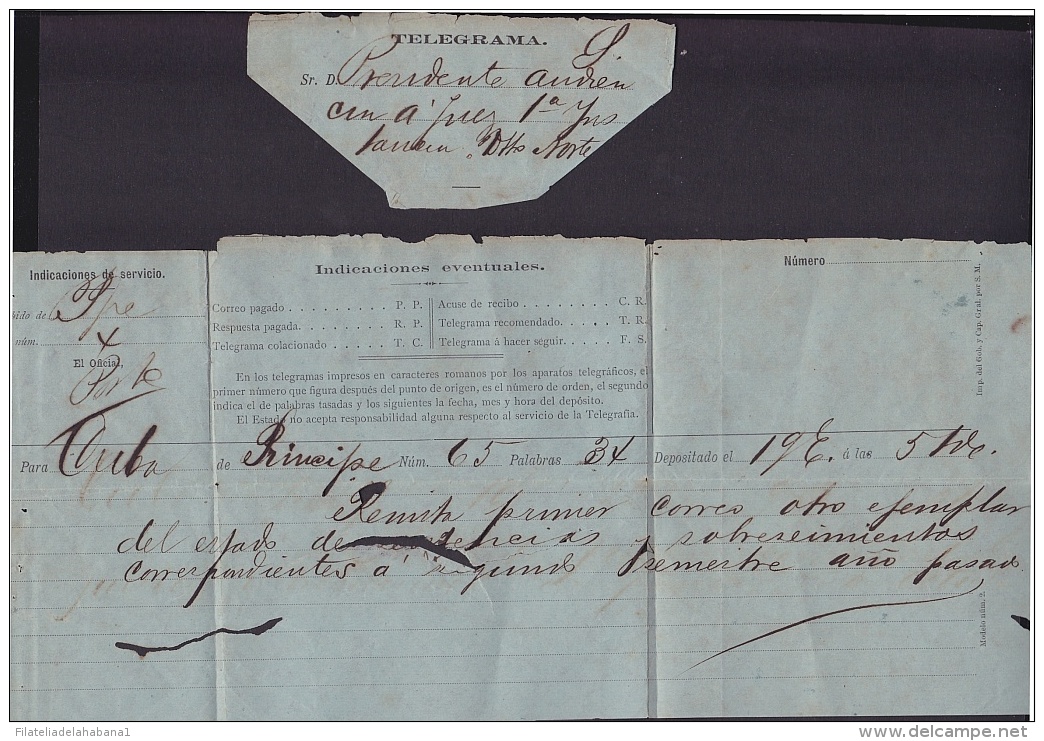 TELEGRAMA. S
Sr. D. Presidente audien
cia á Juez 1ª Yns
tancia. Dtto Norte
Indicaciones de servicio.
bido de Ppe
núm. 4
El Oficial,
Indicaciones eventuales.
Correo pagado . . . . . . . . . P. P.
Respuesta pagada. . . . . . . . R. P.
Telegrama colacionado . . . . . T. C.
Acuse de recibo . . . . . . . . C. R.
Telegrama recomendado. . . . . T. R.
Telegrama á hacer seguir. . . . F. S.
En los telegramas impresos en caracteres romanos por los aparatos telegráficos, el
primer número que figura después del punto de origen, es el número de orden, el segundo
indica el de palabras tasadas y los siguientes la fecha, mes y hora del depósito.
El Estado no acepta responsabilidad alguna respecto al servicio de la Telegrafía.
Número
Imp. del Gob. y Cap. Gral. por S. M.
Para Cuba de Principe Núm. 65 Palabras 34 Depositado el 19 E. á las 5 tde.
Remita primer correo otro ejemplar
del estado de sentencias y sobreseimientos
correspondientes a segundo semestre año pasado
Modelo núm. 2.
Filateliadelahabana1
delcampe.net